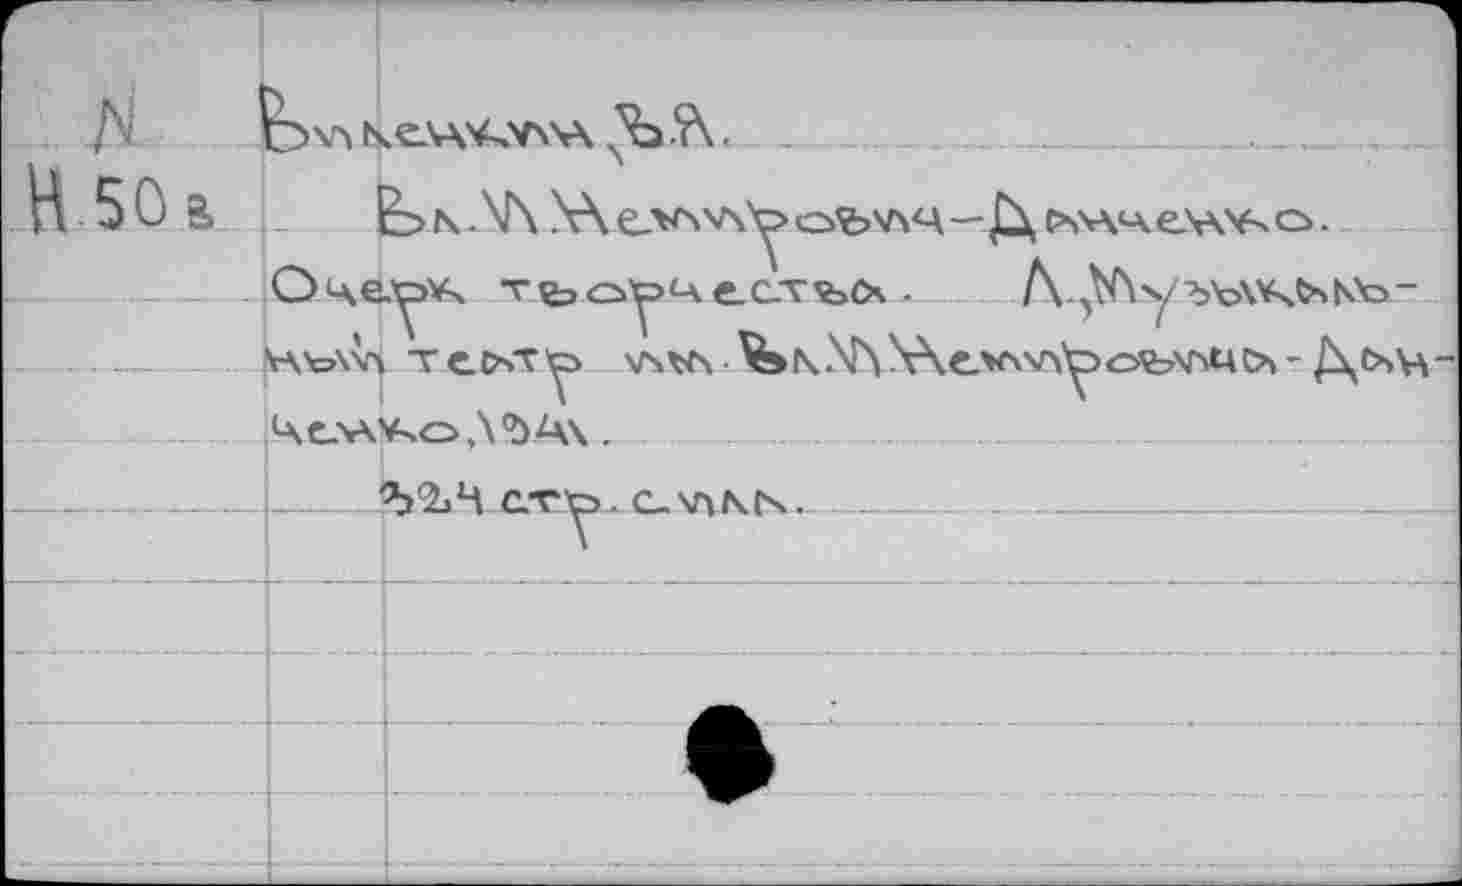 N Виленкин, В.Я.
И 50а Вл.И.Немирович-Данченко.
Очерк творчества. М., Музыкаль-
ный театр им. Вл.И.Немировича-Дан-
ченко, 1941.
324 стр. с илл.